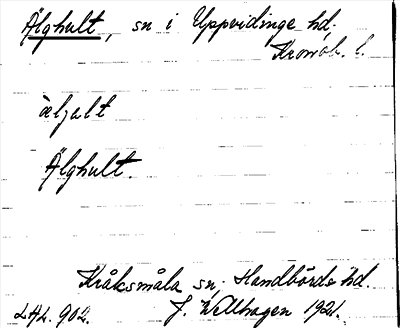 Älghult, sn i Uppvidinge hd.
Kronob. l.
äljalt
Älghult.
Kråksmåla sn, Handbörds hd.
LAL. 902. J. Wellhagen 1921.